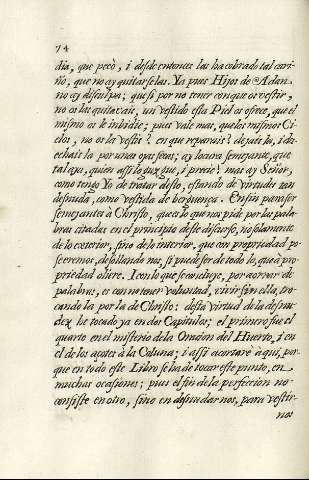 74
dia, que pecò, i desde entonces las ha cobrado tal cari-
ño, que no ay quitarselas. Ya pues Hijos de Adan
no ay disculpa; que si por no tener conque os vestir,
no os las quitavais, un vestido esta Piel os ofrece, que el
mismo os le imbidie; pues vale mas, que los mismos Ci-
elos, no os la vestis? en que reparais? dejais lo, i de-
echais lo por unas ojas secas; ay locura semejante, que
tal aya, quien assi lo juzgue, i precie? mas ay Señor,
como tengo Yo de tratar desto, estando de virtudes tan
desnuda, como vestida de berguença. En fin para ser
semejantes à Christo, que es lo que nos pide por las pala-
bras citadas en el principio deste discurso, no solamente
de lo exterior, sino de lo interior, que con propriedad po-
seeremos, desollando nos, si puede ser de todo lo, que à pro-
priedad oliere. I con lo que se concluye, por aorrar de
palabras, es con no tener voluntad, vivir sin ella, tro-
cando la por la de Christo; desta virtud de la desnu-
dez he tocado ya en dos Capitulos; el primero fue el
quarto en el misterio de la Oracion del Huerto, i en
el de los açotes à la Coluna; i assi acortare à qui, por-
que en todo este Libro se ha de tocar este punto, en
muchas ocasiones; pues el fin de la perfeccion no
consiste en otro, sino en desnudar nos, para vestir-
nos